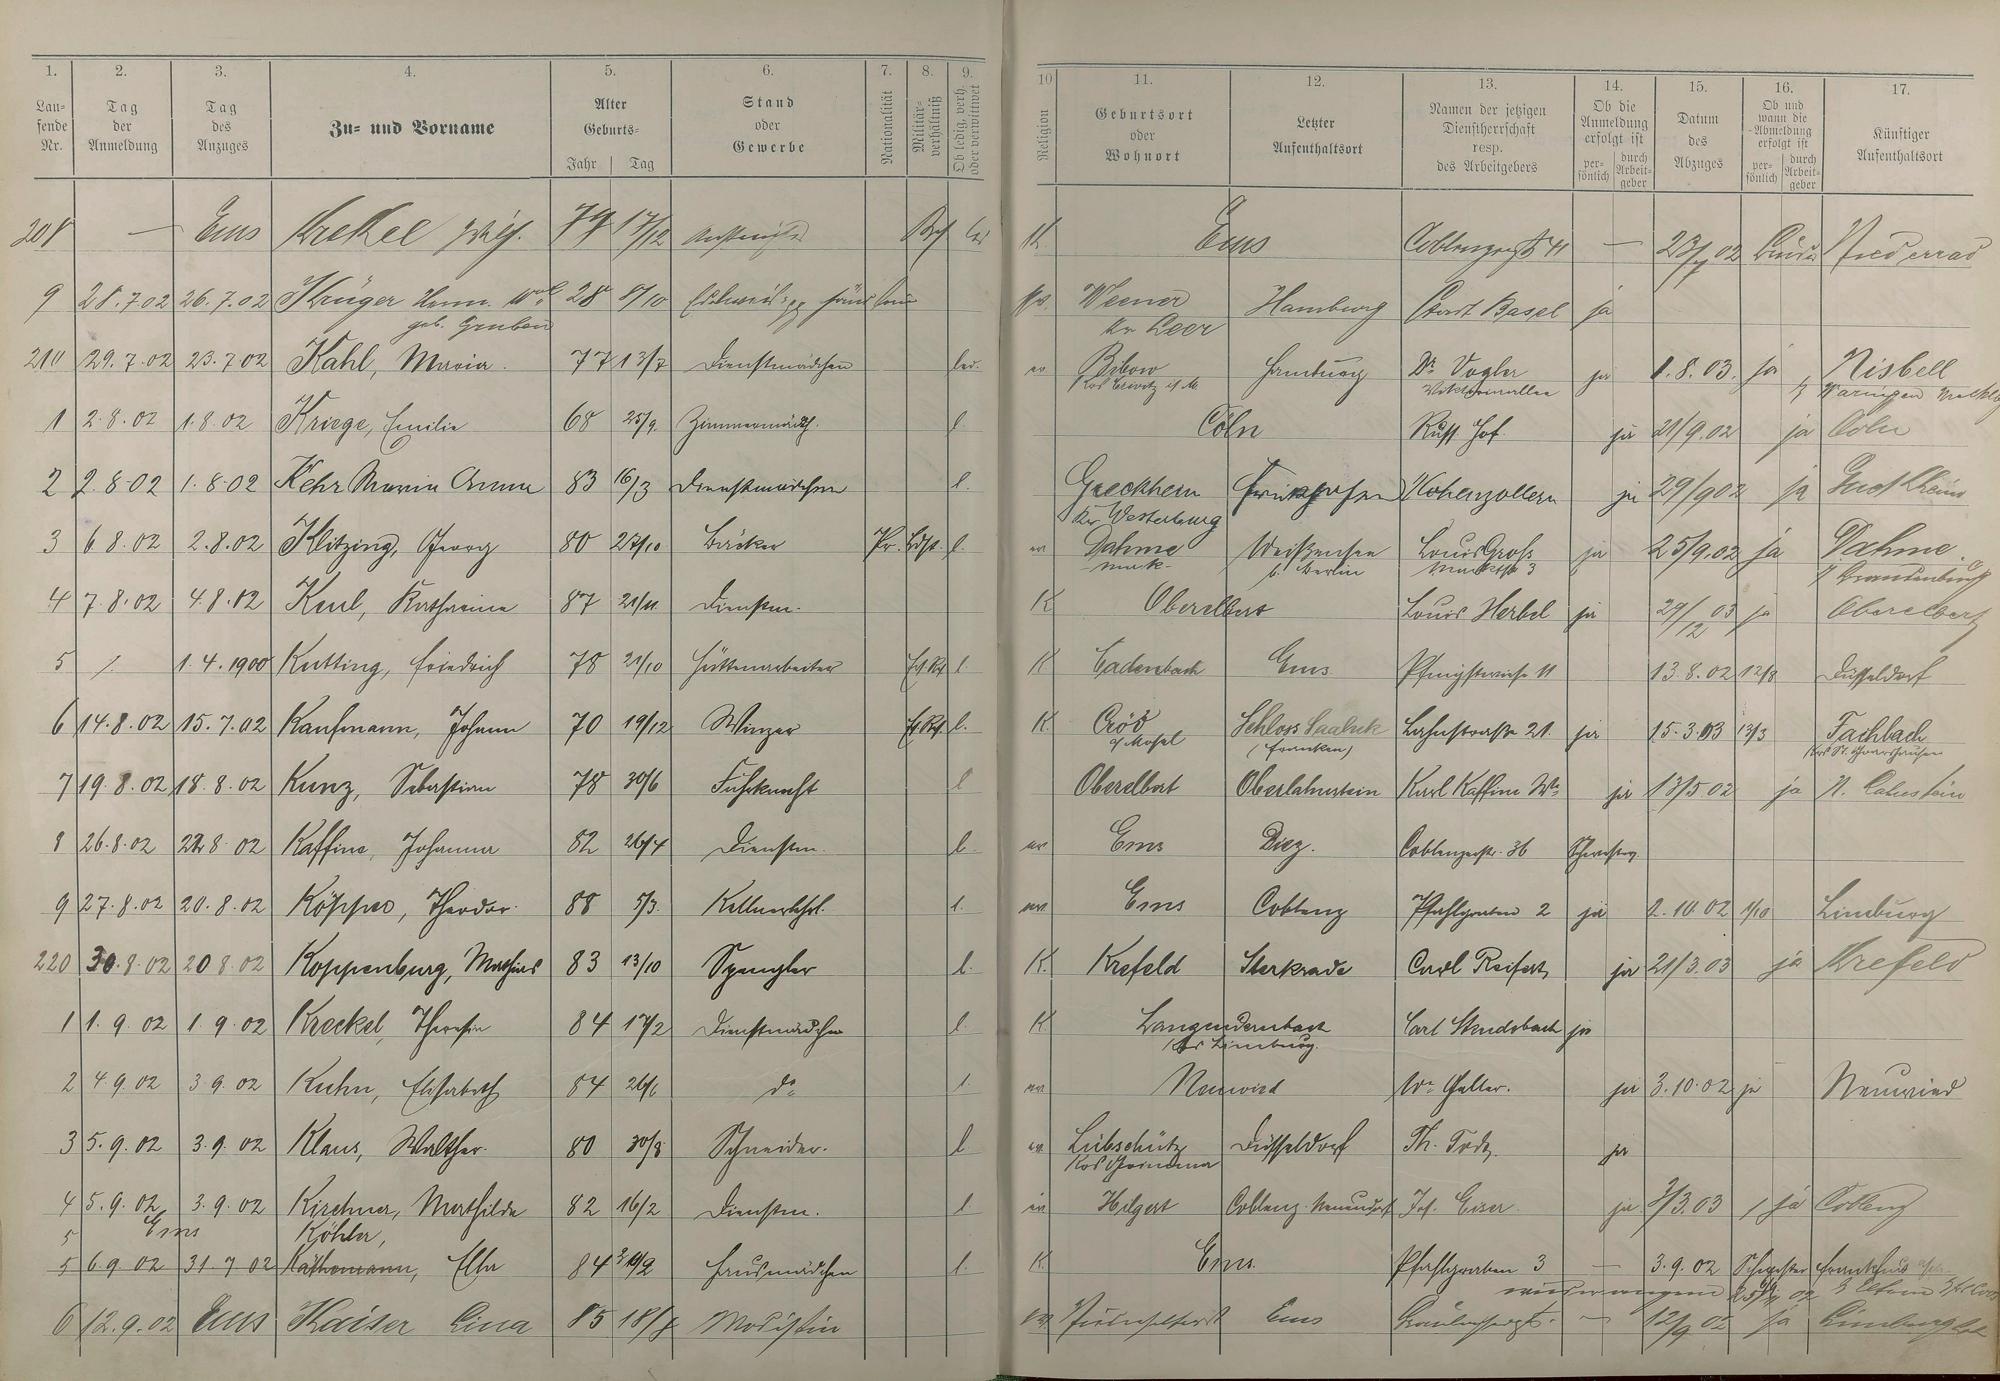 1. 2. 3. 4. 5. 6. 7. 8. 9. 10 11. 12. 13. 14. 15. 16. 17.
Lau-
fende
Nr.
Tag
der
Anmeldung
Tag
des
Anzuges
Zu- und Vorname
Alter
Geburts-
Jahr Tag
Stand
oder
Gewerbe
Nationalität
Militär-
verhältniß
Ob ledig, verh.
oder verwittwet
Religion
Geburtsort
oder
Wohnort
Letzter
Aufenthaltsort
Namen der jetzigen
Dienstherrschaft
resp.
des Arbeitgebers
Ob die
Anmeldung
erfolgt ist
per-
sönlich
durch
Arbeit-
geber
Datum
des
Abzuges
Ob und
wann die
Abmeldung
erfolgt ist
per-
sönlich
durch
Arbeit-
geber
Künftiger
Aufenthaltsort
208 — Ems Krekel Wilh. 79 17/12 K. Ems Coblenzerstr 41 — 23/7 02 Niederrad
9 28.7.02 26.7.02 Krüger Herm. 28 8/10 Weener Hamburg Stadt Basel ja
geb. Gruben Kr Leer
210 29.7.02 23.7.02 Kahl, Maria. 77 13/7 Dienstmädchen led. ev Bibow Hamburg Dr. Vogler ja 1.8.03. ja Nisbell
Viktoriaallee
1 2.8.02 1.8.02 Kriege, Emilie 68 25/9. Zimmermädch. l. Cöln Russ. Hof. ja 21/9.02 ja Cöln
2 2.8.02 1.8.02 Kehr Maria Anna 83 16/3 Dienstmädchen l. Hohenzollern ja 29/9 02 ja
Kr. Westerburg
3 6.8.02 2.8.02 Klitzing, Georg 80 27/10 Bäcker Pr. l. ev Dahme Weißensee Louis Groß ja 25/9.02 ja Dahme
Mark. b. Berlin Marktstr 3 Brandenburg
4 7.8.02 4.8.02 Keul, Katharina 87 21/11 Dienstm. K Oberelbert Louis Herbel ja 29/12 03 ja Oberelbert
5 1.4.1900 Kutting, Friedrich 78 21/10 Hüttenarbeiter l. K Cadenbach Ems Pfingstwiese 11 13.8.02 12/8 Düsseldorf
6 14.8.02 15.7.02 Kaufmann, Johann 70 19/12 Winzer l. K. Cröv Schloss Saaleck Lahnstraße 21. ja 15.3.03 13/3 Fachbach
a/Mosel (Franken) Krs St. Goarshausen
7 19.8.02 18.8.02 Kunz, Sebastian 78 30/6 Fuhrknecht l Oberelbert Oberlahnstein Karl Kaffine We ja 13/5.02 ja N. Lahnstein
8 26.8.02 22.8.02 Kaffine, Johanna 82 26/4 Dienstm. l. ev Ems Diez. Coblenzerstr. 36
9 27.8.02 20.8.02 Köpper, Theodor. 88 5/3. Kellnerlehrl. l. ev. Ems Coblenz Pfahlgraben 2 ja 2.10.02 1/10 Limburg
220 30.8.02 20 8.02 Koppenburg, Mathias 83 13/10 Spengler l. K. Krefeld Sterkrade Carl Reifert ja 21/3.03 ja Krefeld
1 1.9.02 1.9.02 Kreckel, Theresia 84 17/2 Dienstmädchen l. K Langendernbach Carl ja
Krs Limburg.
2 4.9.02 3.9.02 Kuhn, Elisabeth 84 26/1 do l. ev. Neuwied We ja 3.10.02 ja Neuwied
3 5.9.02 3.9.02 Klaus, Walther. 80 30/8 Schneider. l ev. Lübschütz Düsseldorf Th. ja
Krs Grimma
4 5.9.02 3.9.02 Kirchner, Mathilde 82 16/2 Dienstm. l. ev Hilgert Coblenz-Neuendorf Jos. Eiser. ja 3/3.03 ja Coblenz
5 Ems Köhler,
5 6.9.02 31.7.02 Käthemann, Ella 84 Hausmädchen l. K. Ems. Pfahlgraben 3 — 3.9.02 Schwester
6 12.9.02 Ems Kaiser Lina 85 18/8 Modistin ev. Ems — 12/9 02 ja Limburg